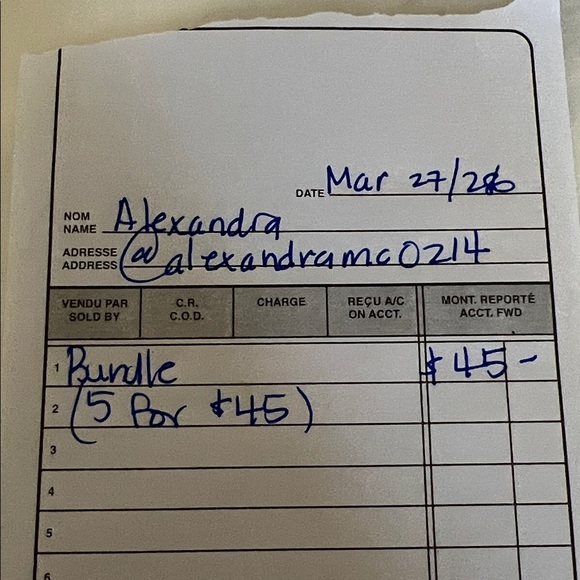 DATE Mar 27/26
NOM
NAME Alexandra
ADRESSE
ADDRESS @alexandramc0214
VENDU PAR
SOLD BY
C.R.
C.O.D.
CHARGE
REÇU A/C
ON ACCT.
MONT. REPORTÉ
ACCT. FWD
1 Bundle $45-
2 (5 for $45)
3
4
5
6